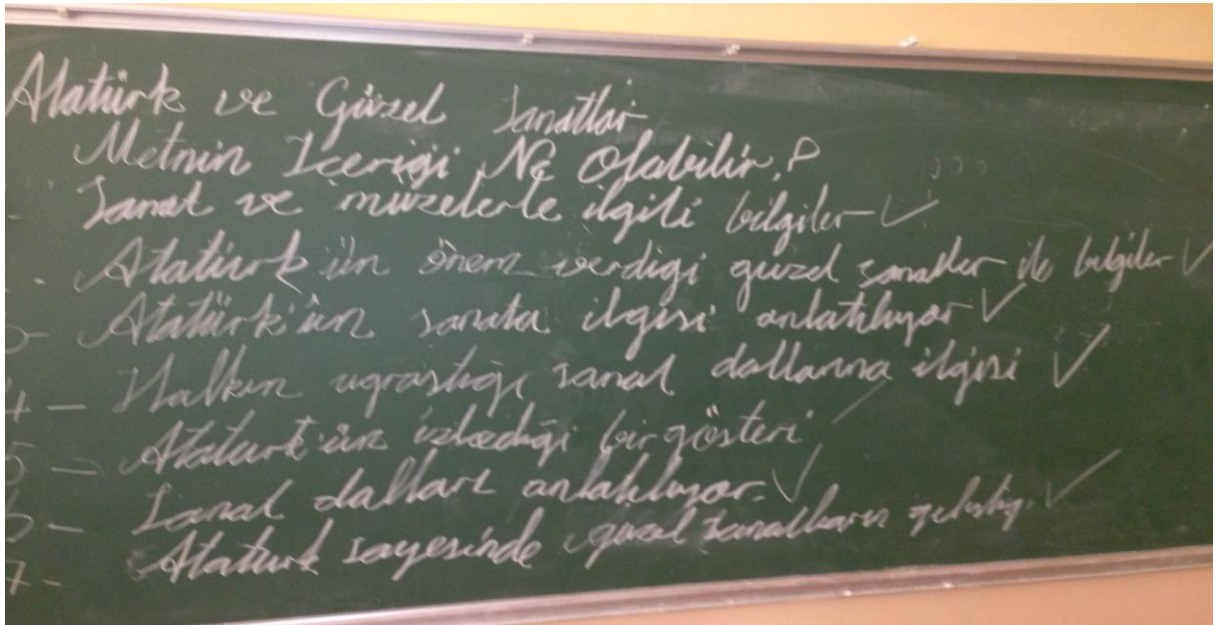 Atatürk ve Güzel Sanatlar
Metnin İçeriği Ne Olabilir.?
- Sanat ve müzelerle ilgili bilgiler ✓
- Atatürk'ün önem verdiği güzel sanatlar ile bilgiler ✓
3- Atatürk'ün sanata ilgisi anlatılıyor ✓
4- Halkın uğraştığı sanat dallarına ilgisi ✓
5- Atatürk'ün izlediği bir gösteri
6- Sanat dalları anlatılıyor. ✓
7- Atatürk sayesinde güzel sanatların geliştiği. ✓